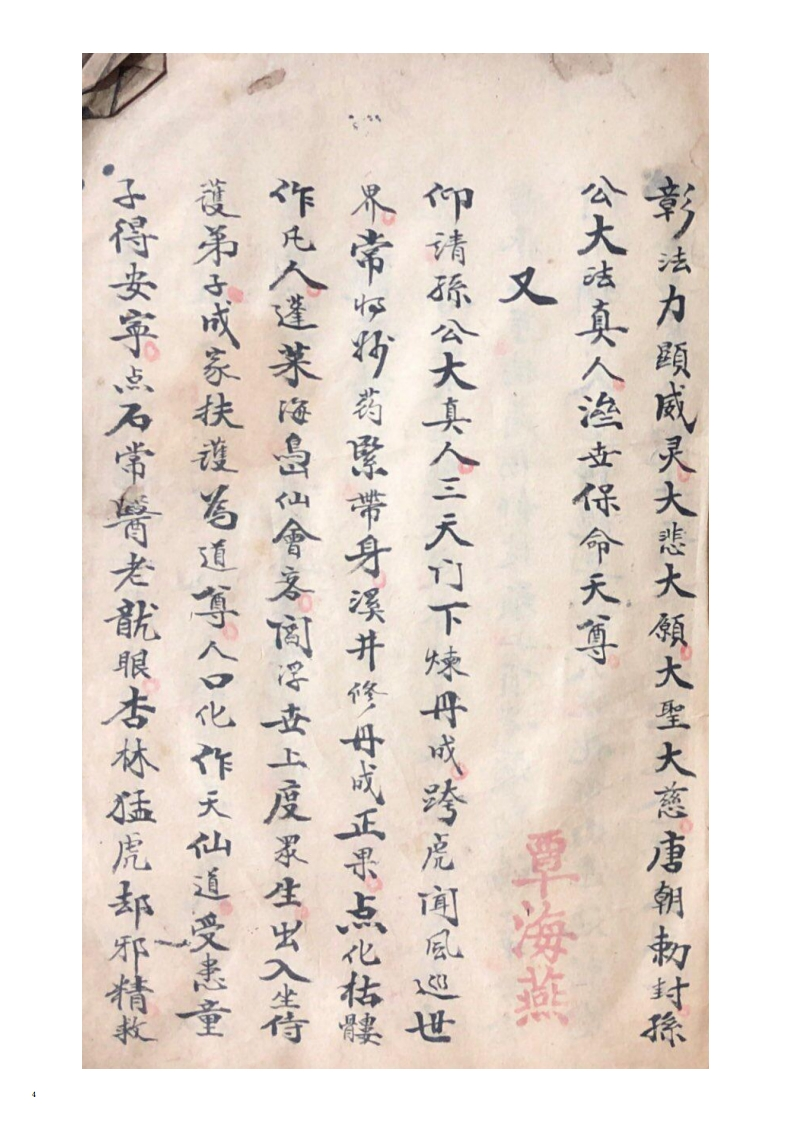 彰法力顕威灵大悲大願大聖大慈唐朝勅封孫
公大法真人濟世保命天尊
又
覃海燕
仰請孫公大真人三天门下煉丹成跨虎闻風巡世
界常将妙药緊帶身溪井修丹成正果点化枯髏
作凡人蓬莱海島仙會客阎浮世上度眾生出入坐侍
護弟子成家扶護為道尊人口化作天仙道受患童
子得安寧点石常醫老龍眼杏林猛虎却邪精救
4